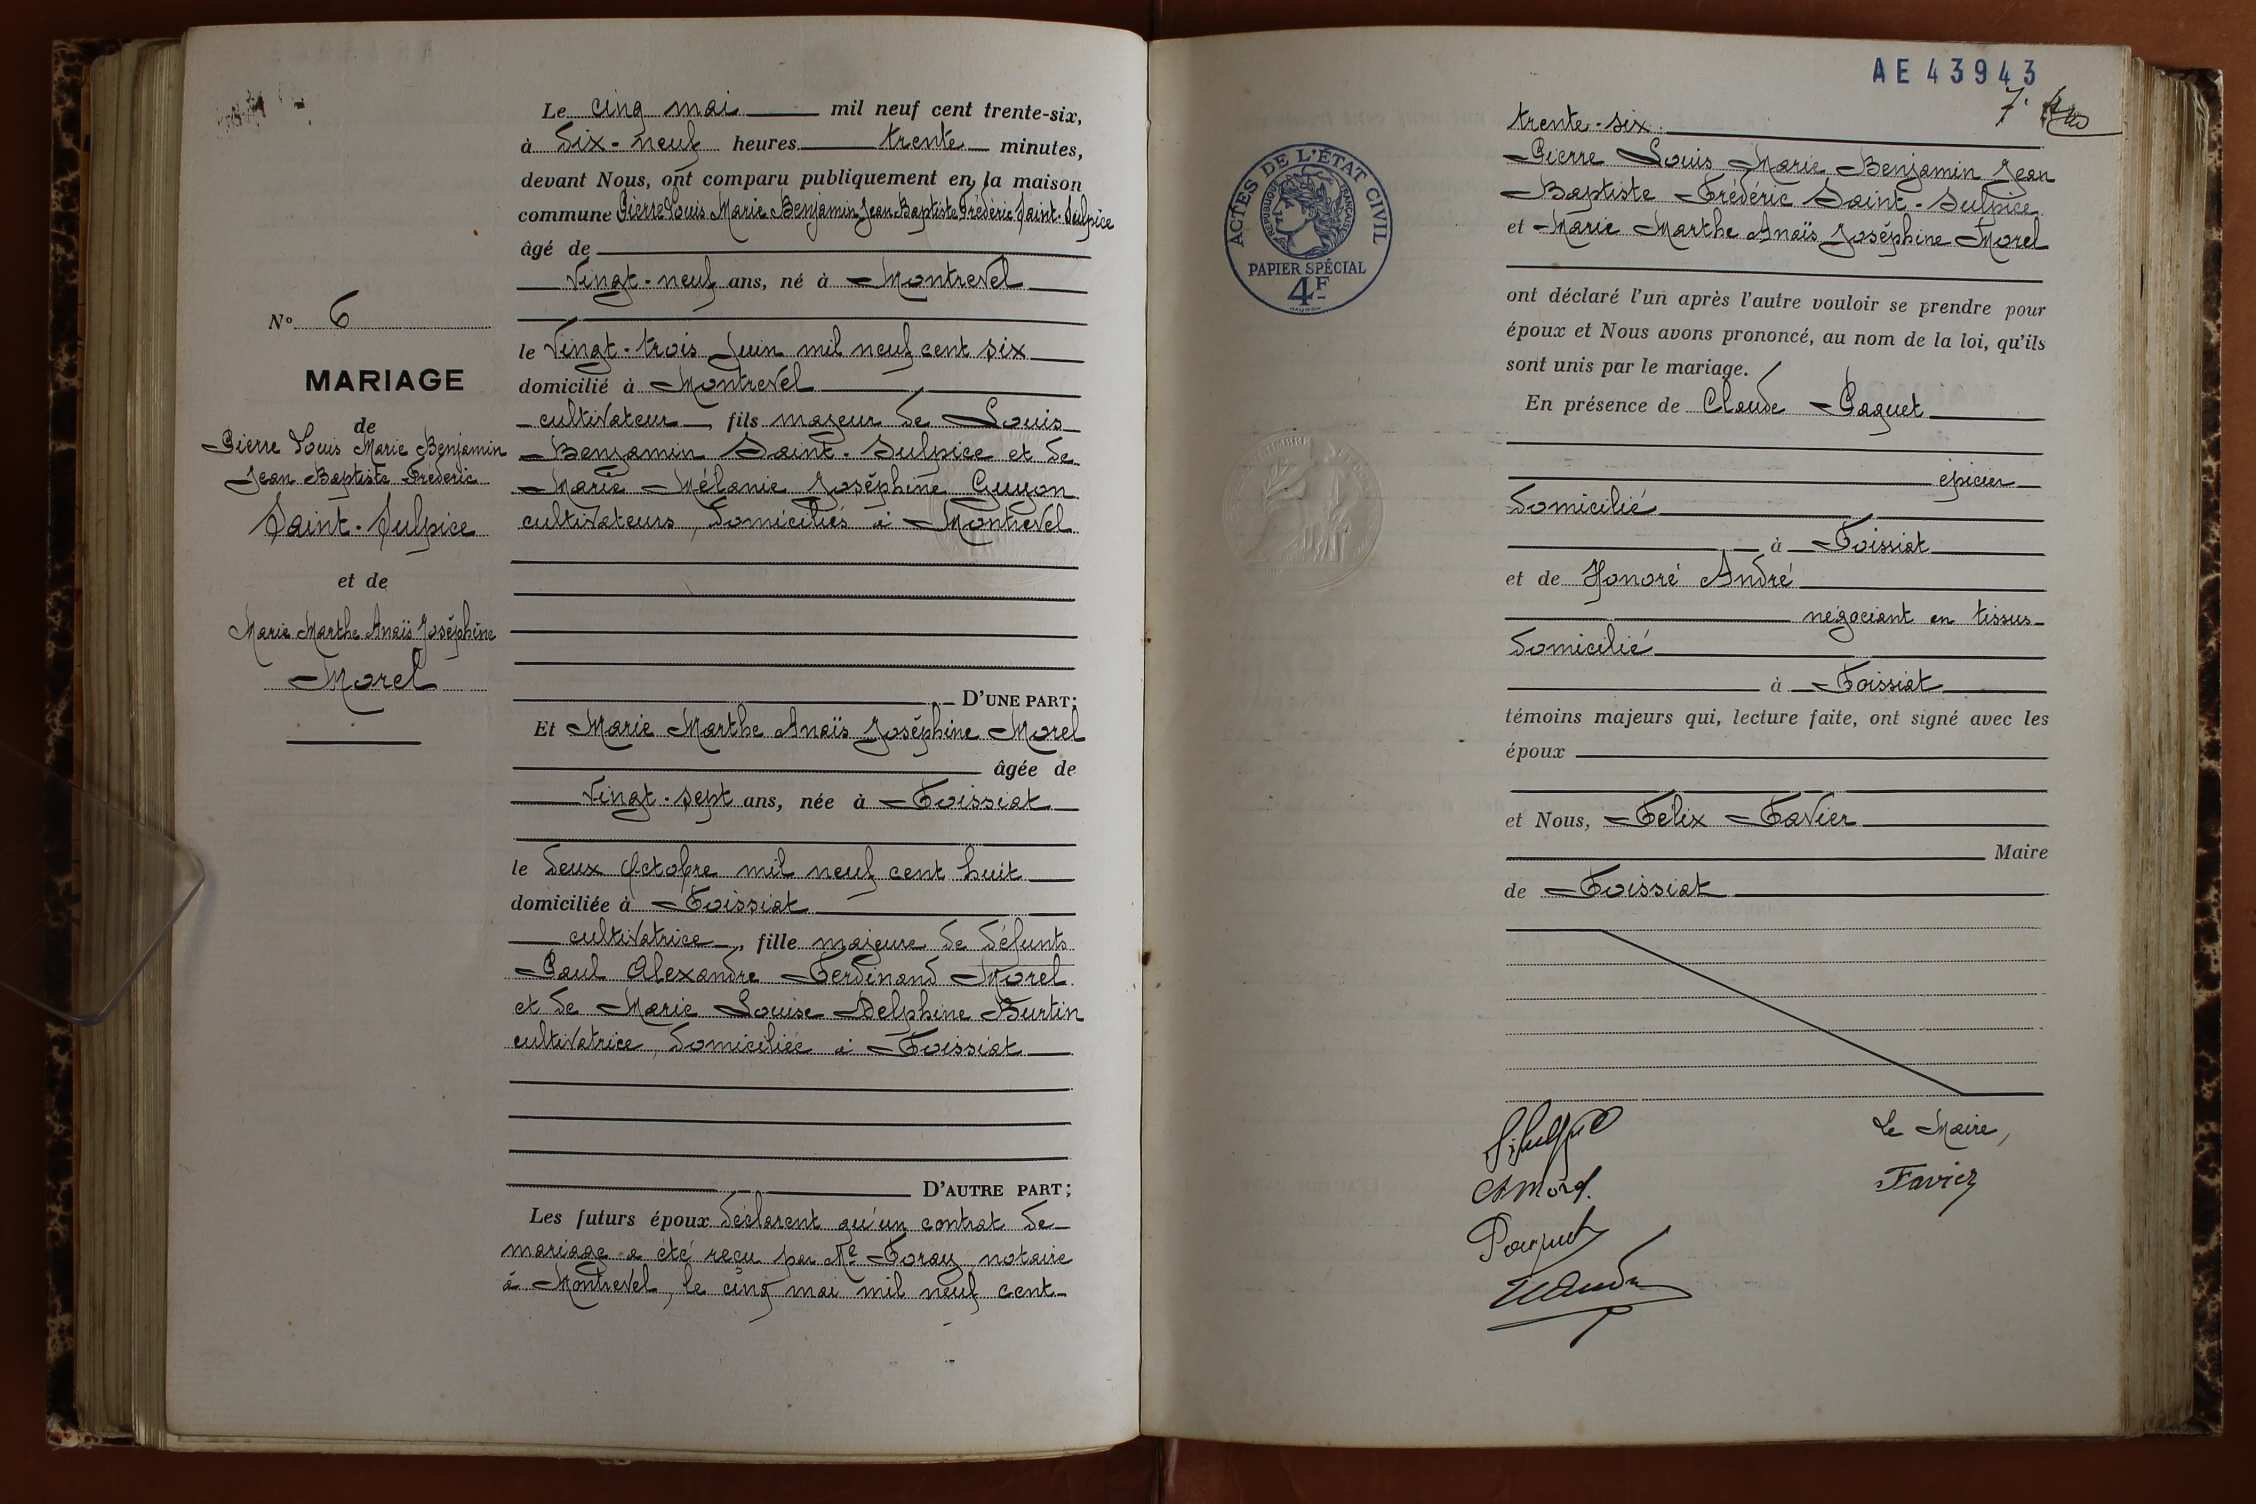 Le cinq mai mil neuf cent trente-six,
à dix-neuf heures trente minutes,
devant Nous, ont comparu publiquement en la maison
commune Pierre Louis Marie Benjamin Jean Baptiste Frédéric Saint-Sulpice
âgé de
vingt-neuf ans, né à Montrevel
le vingt-trois Juin mil neuf cent six
domicilié à Montrevel
cultivateur, fils majeur de Louis
Benjamin Saint-Sulpice et de
Marie Mélanie Joséphine Guyon
cultivateurs, domiciliés à Montrevel
D'UNE PART;
Et Marie Marthe Anaïs Joséphine Morel
âgée de
vingt-sept ans, née à Foissiat
le deux Octobre mil neuf cent huit
domiciliée à Foissiat
cultivatrice, fille majeure de défunts
Paul Alexandre Ferdinand Morel
et de Marie Louise Delphine Burtin
cultivatrice, domiciliée à Foissiat
D'AUTRE PART;
Les futurs époux déclarent qu'un contrat de
mariage a été reçu par Me Foray notaire
à Montrevel, le cinq mai mil neuf cent
No 6
MARIAGE
de
Pierre Louis Marie Benjamin
Jean Baptiste Frédéric
Saint-Sulpice
et de
Marie Marthe Anaïs Joséphine
Morel
AE 43943
7.
trente-six.
Pierre Louis Marie Benjamin Jean
Baptiste Frédéric Saint-Sulpice
et Marie Marthe Anaïs Joséphine Morel
ont déclaré l'un après l'autre vouloir se prendre pour
époux et Nous avons prononcé, au nom de la loi, qu'ils
sont unis par le mariage.
En présence de Claude Paquet
épicier
domicilié
à Foissiat
et de Honoré André
négociant en tissus
domicilié
à Foissiat
témoins majeurs qui, lecture faite, ont signé avec les
époux
et Nous, Félix Favier
Maire
de Foissiat
Le Maire,
Favier
A Morel.
Paquet
ACTES DE L'ÉTAT CIVIL
RÉPUBLIQUE FRANÇAISE
PAPIER SPÉCIAL
4F